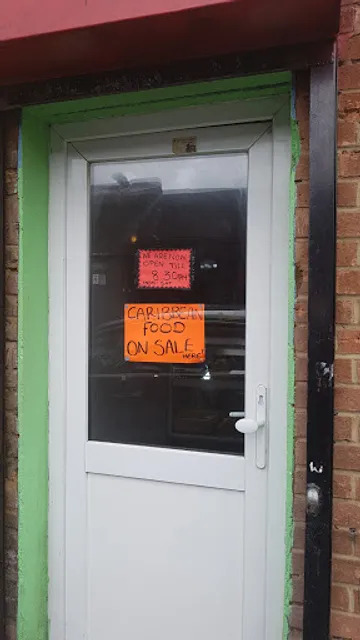 WE ARE NOW
OPEN TILL
8.30PM
CARIBBEAN
FOOD
ON SALE
HERE!